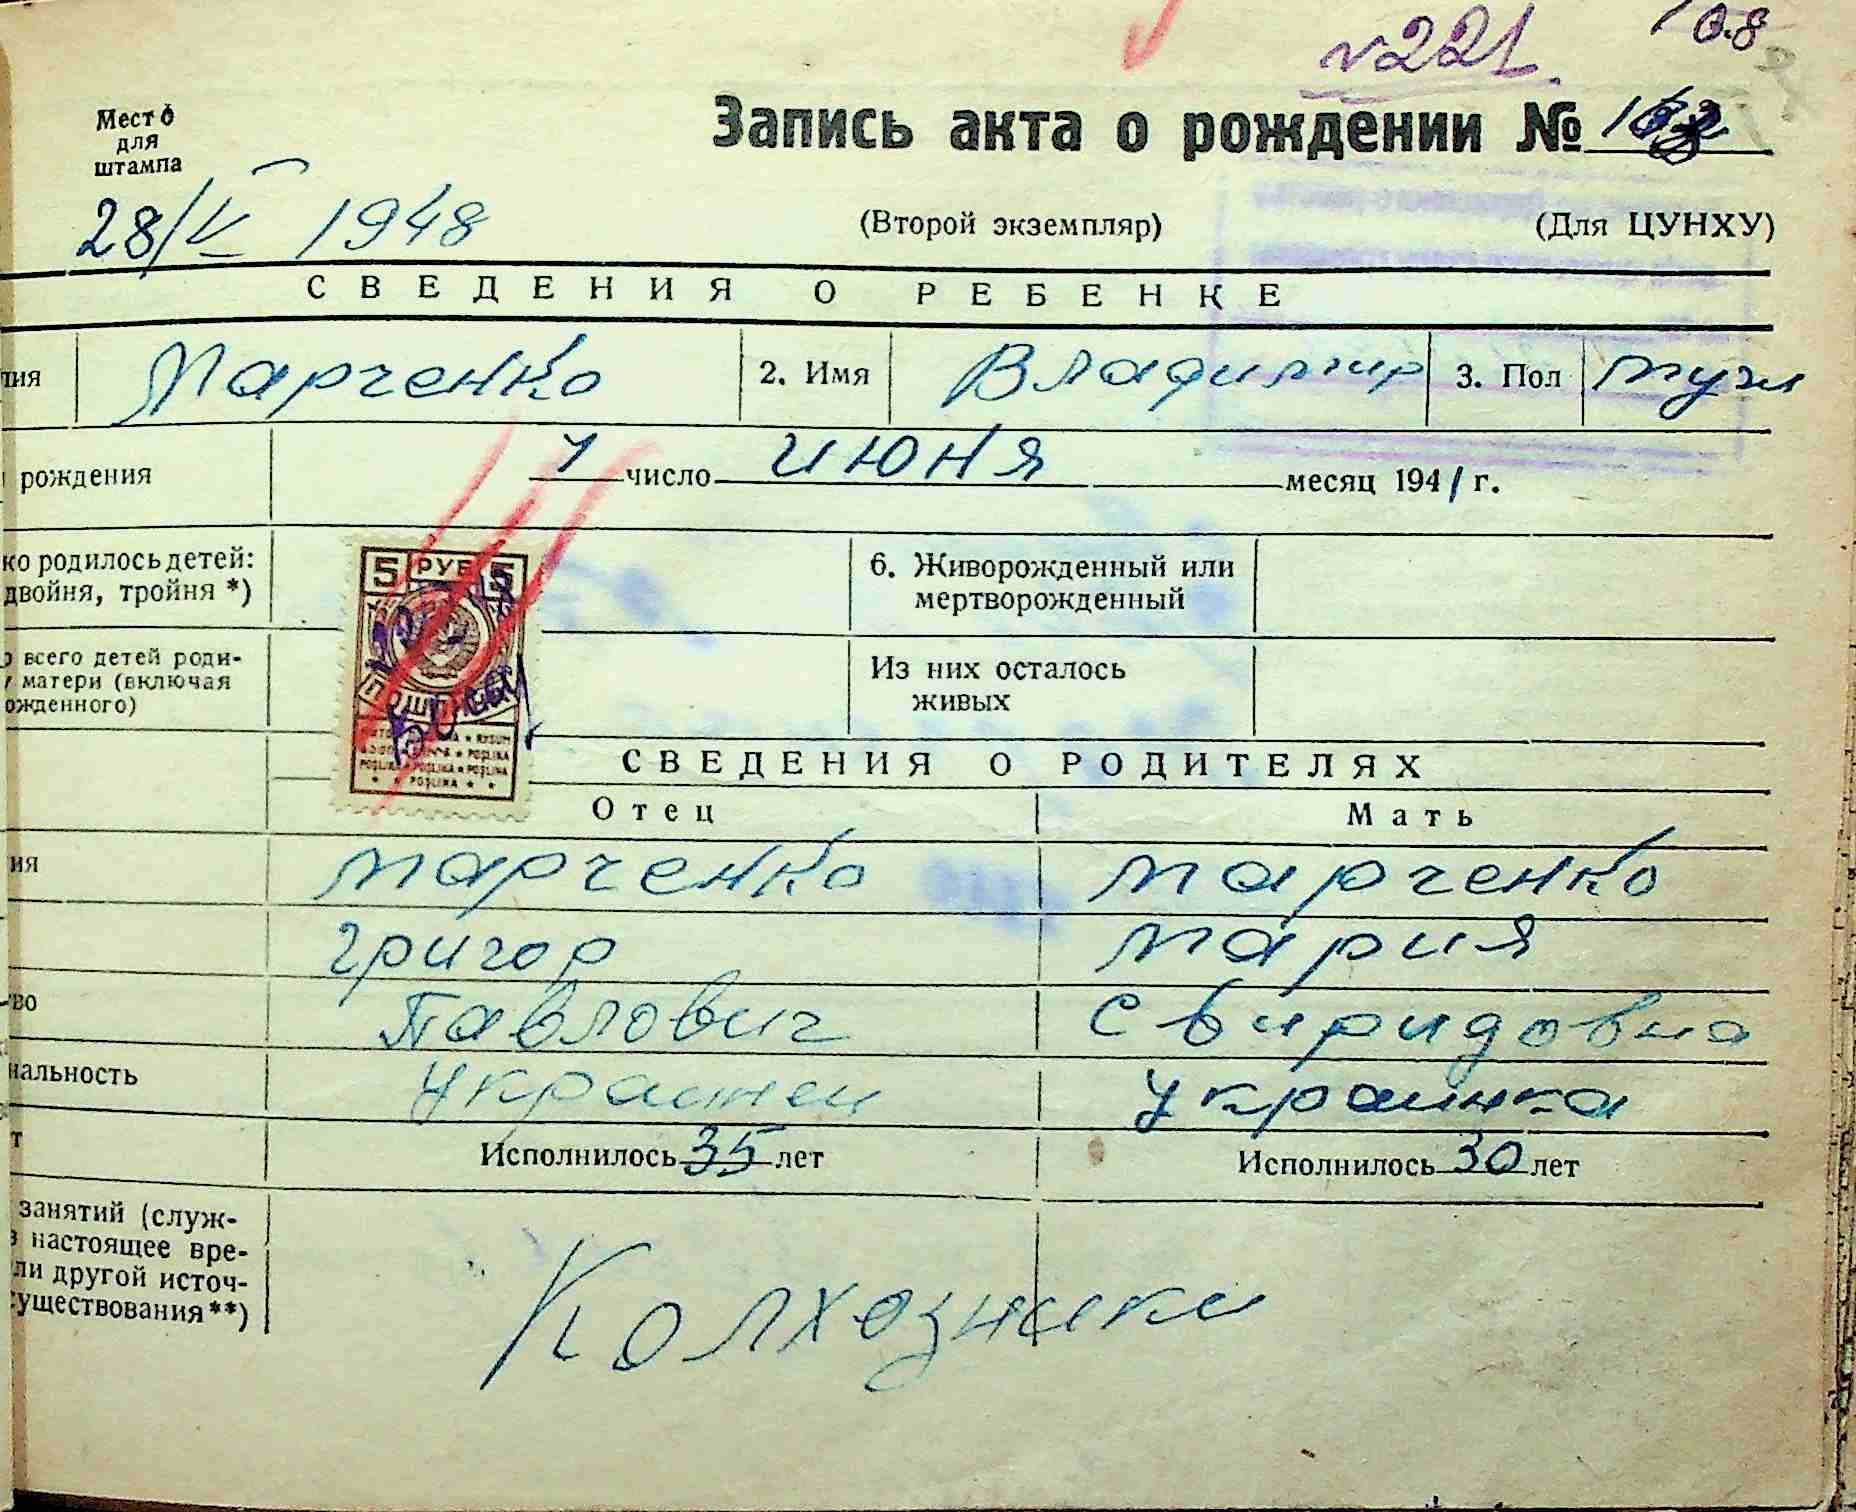 №221. 108
Место
для
штампа
Запись акта о рождении №
28/V 1948
(Второй экземпляр) (Для ЦУНХУ)
СВЕДЕНИЯ О РЕБЕНКЕ
лия Марченко 2. Имя Владимир 3. Пол муж
рождения 1 число июня месяц 1941 г.
ко родилось детей:
двойня, тройня *)
5 РУБ 5
6. Живорожденный или
мертворожденный
о всего детей роди-
у матери (включая
ожденного)
Из них осталось
живых
POŞLINA
СВЕДЕНИЯ О РОДИТЕЛЯХ
Отец Мать
ия Марченко Марченко
Григор Мария
во Павлович Свиридовна
нальность украинец украинка
т Исполнилось 35 лет Исполнилось 30 лет
занятий (служ-
в настоящее вре-
ли другой источ-
существования**)
Колхозники